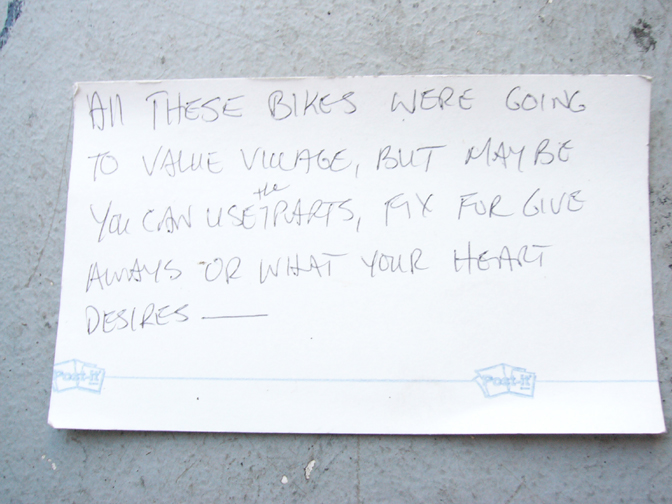 All THESE BIKES WERE GOING
TO VALUE VILLAGE, BUT MAYBE
YOU CAN USE the PARTS, FIX FOR GIVE
AWAYS OR WHAT YOUR HEART
DESIRES —
Post-it Post-it